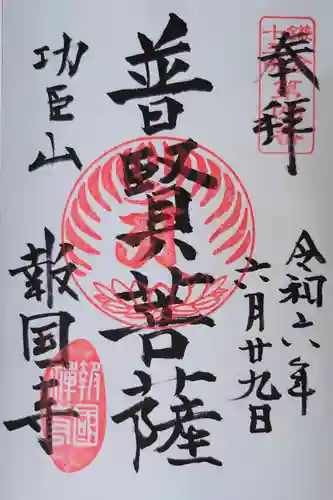 奉拝
令和六年
六月廿九日
普賢菩薩
功臣山
報国寺
報国
禅寺